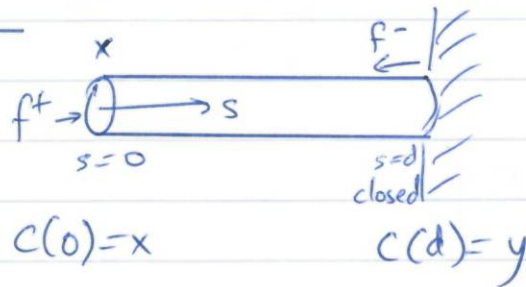 x
f⁻
f⁺
s
s=0
s=d
closed
C(0)=x
C(d)=y